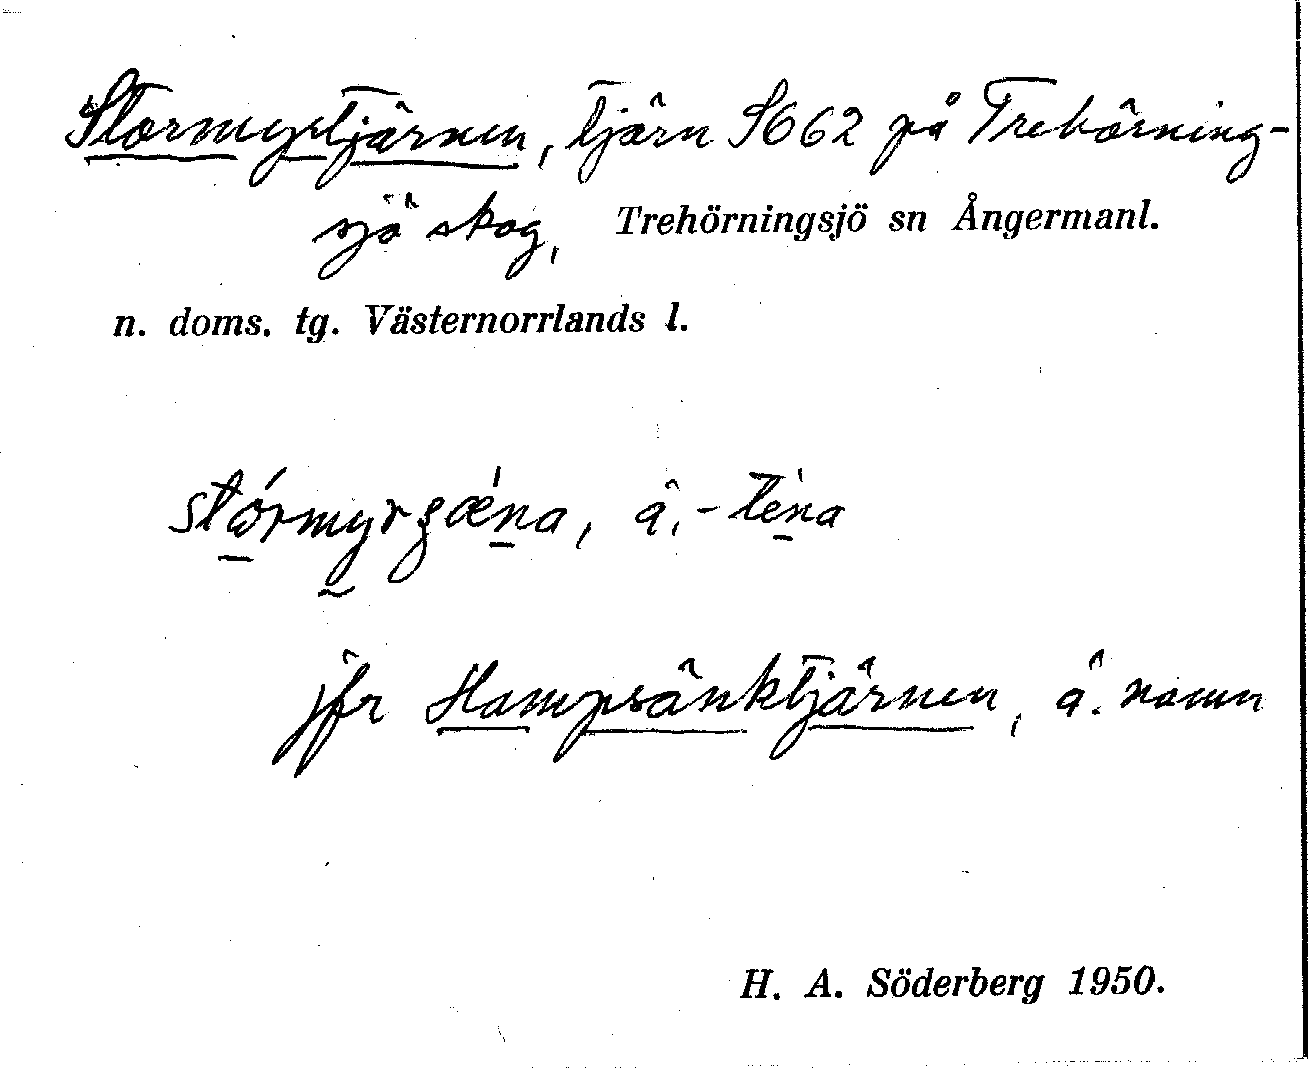 Stormyrtjärnen, tjärn S662 på Trehörning-
sjö skog, Trehörningsjö sn Ångermanl.
n. doms. tg. Västernorrlands l.
stórmyrʒǽna, ä. -téna
jfr Hampsänktjärnen, ä. namn
H. A. Söderberg 1950.